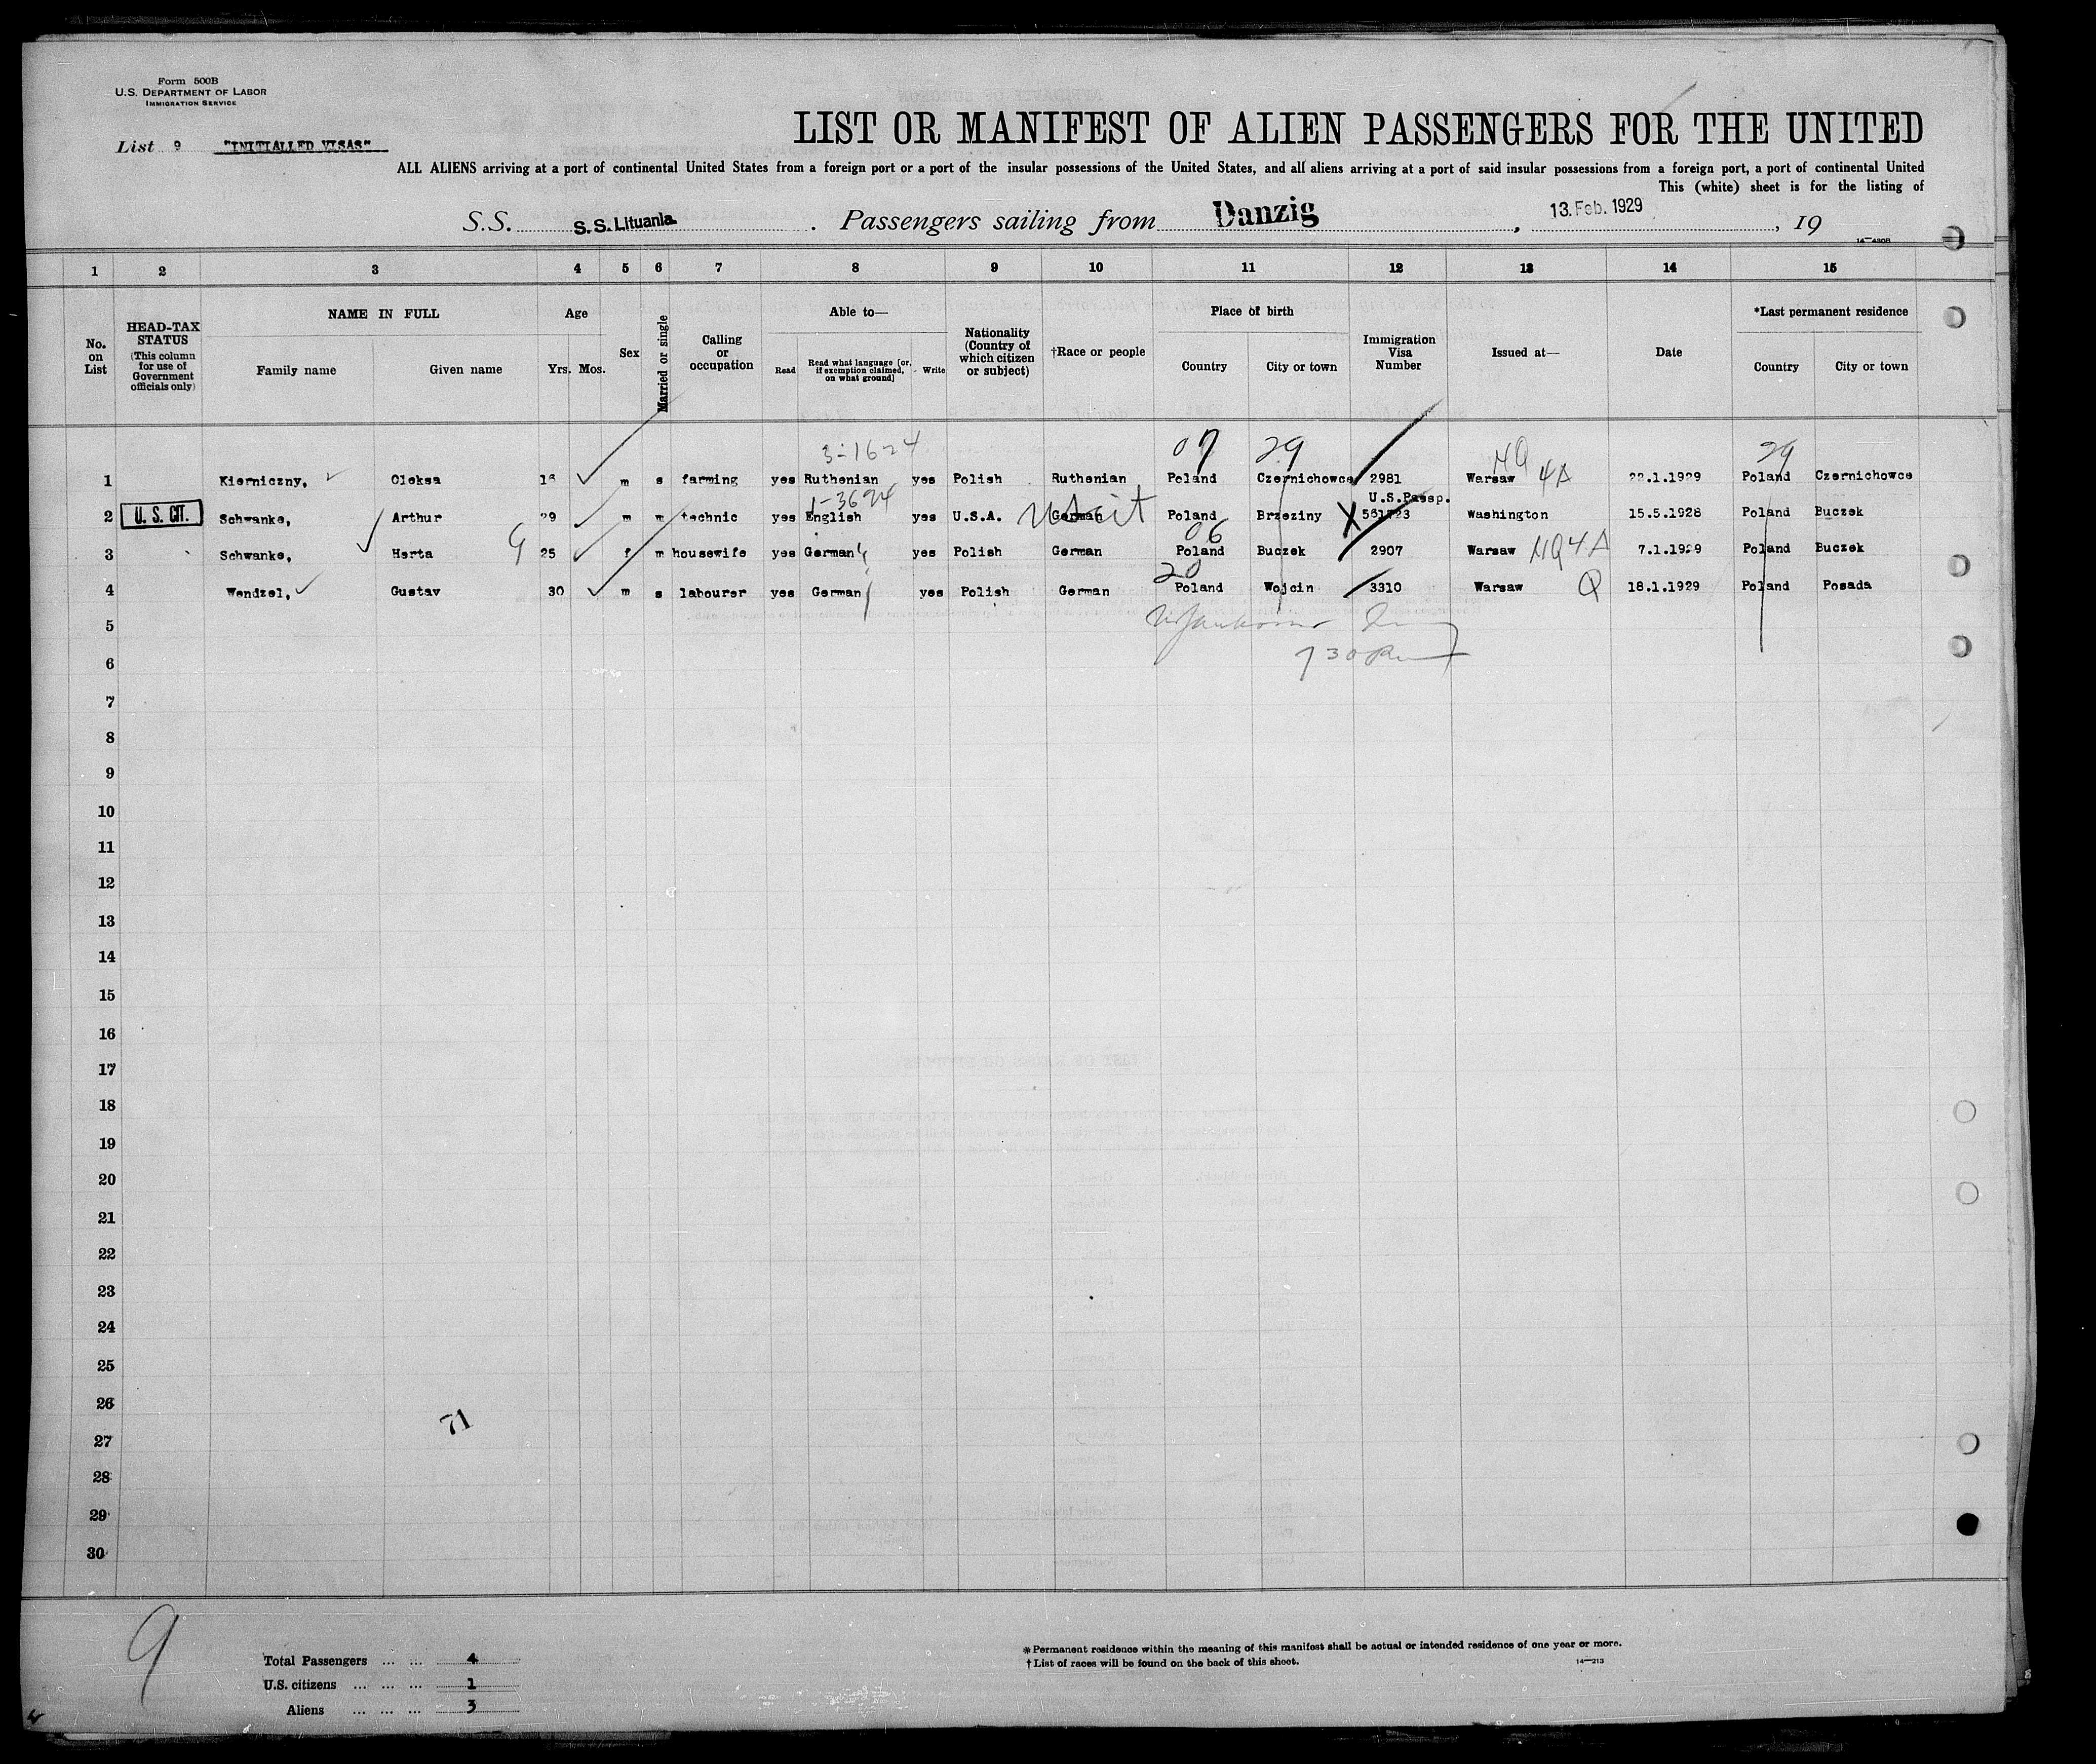 Form 500B
U.S. DEPARTMENT OF LABOR
IMMIGRATION SERVICE
List 9 "INITIALLED VISAS"
LIST OR MANIFEST OF ALIEN PASSENGERS FOR THE UNITED
ALL ALIENS arriving at a port of continental United States from a foreign port or a port of the insular possessions of the United States, and all aliens arriving at a port of said insular possessions from a foreign port, a port of continental United
This (white) sheet is for the listing of
S.S. S.S. Lituania. Passengers sailing from Danzig, 13. Feb. 1929, 19
14—430B
1 2 3 4 5 6 7 8 9 10 11 12 13 14 15
No. on List
HEAD-TAX STATUS (This column for use of Government officials only)
NAME IN FULL
Family name Given name
Age
Yrs. Mos.
Sex
Married or single
Calling or occupation
Able to—
Read Read what language [or, if exemption claimed, on what ground] Write
Nationality (Country of which citizen or subject)
†Race or people
Place of birth
Country City or town
Immigration Visa Number
Issued at—
Date
*Last permanent residence
Country City or town
3-1624 07 29 NQ 29
1 Kierniczny, Oleksa 16 m s farming yes Ruthenian yes Polish Ruthenian Poland Czernichowce 2981 Warsaw 4A 22.1.1929 Poland Czernichowce
1-3694 U.S.Passp.
2 U. S. CIT. Schwanke, Arthur 29 m m technic yes English yes U.S.A. German US cit Poland Brzeziny X 561723 Washington 15.5.1928 Poland Buczek
06
3 Schwanke, Herta 9 25 f m housewife yes German yes Polish German Poland Buczek 2907 Warsaw NQ 4A 7.1.1929 Poland Buczek
20
4 Wendzel, Gustav 30 m s labourer yes German yes Polish German Poland Wojcin 3310 Warsaw Q 18.1.1929 Poland Posada
5
6 730
7
8
9
10
11
12
13
14
15
16
17
18
19
20
21
22
23
24
25
26
71
27
28
29
30
9
Total Passengers ... ... 4
U.S. citizens ... ... ... 1
Aliens ... ... ... 3
* Permanent residence within the meaning of this manifest shall be actual or intended residence of one year or more.
† List of races will be found on the back of this sheet.
14—213